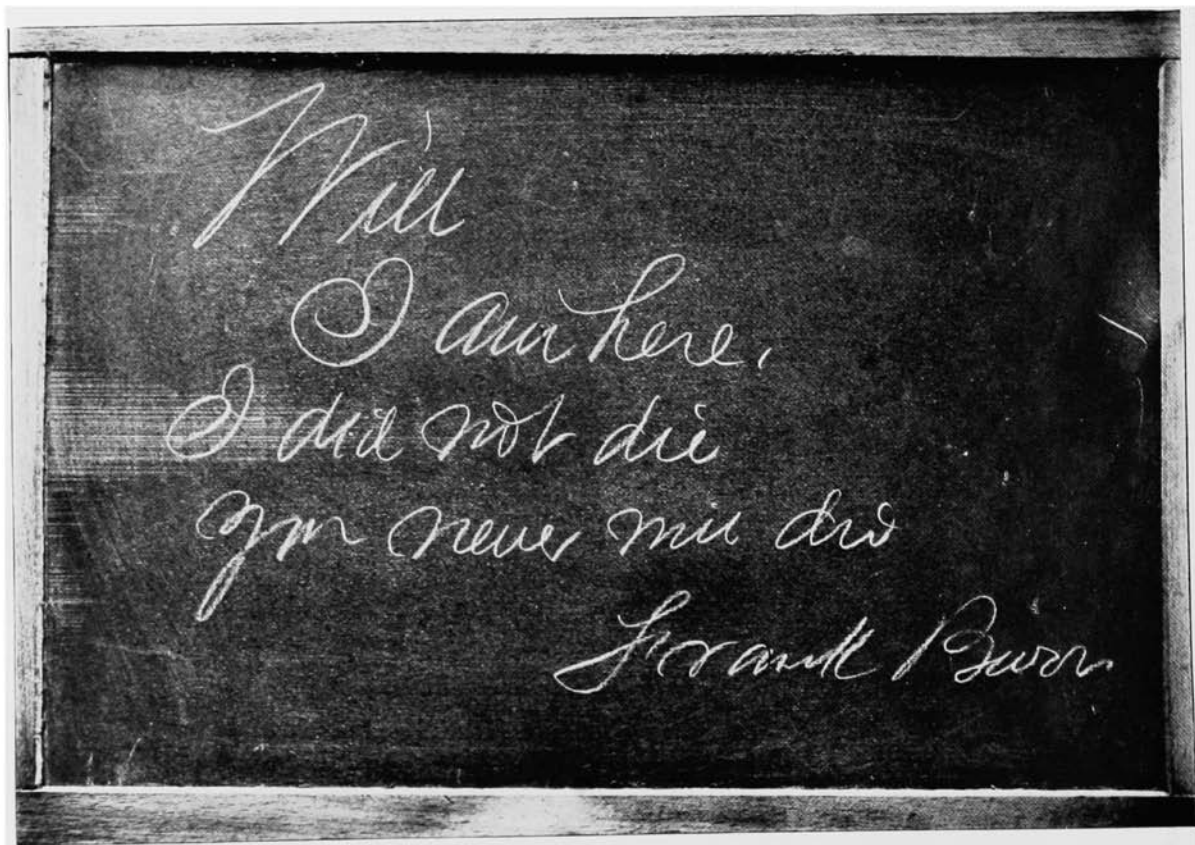 Will
I am here.
I did not die
you never will die
Frank